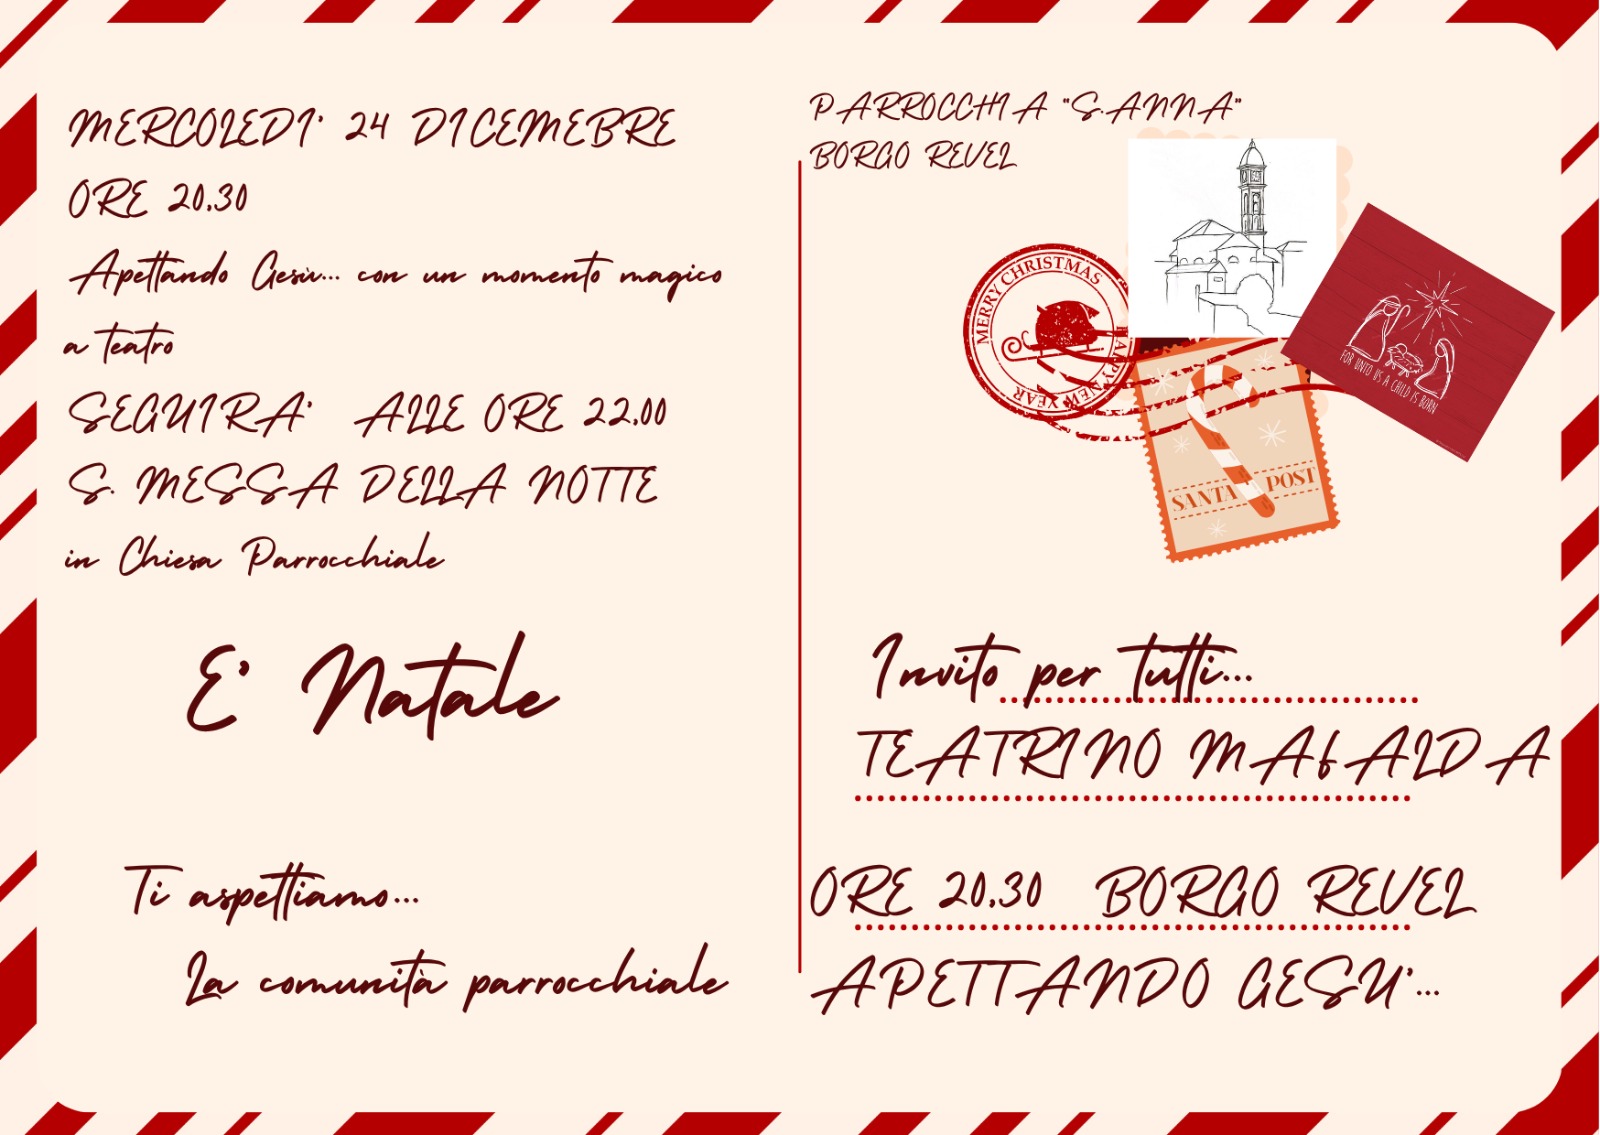 MERCOLEDI' 24 DICEMEBRE
ORE 20.30
Apettando Gesù... con un momento magico
a teatro
SEGUIRA' ALLE ORE 22.00
S. MESSA DELLA NOTTE
in Chiesa Parrocchiale
E' Natale
Ti aspettiamo...
La comunità parrocchiale
PARROCCHIA "S.ANNA"
BORGO REVEL
MERRY CHRISTMAS
HAPPY NEW YEAR
FOR UNTO US A CHILD IS BORN
SANTA POST
Invito per tutti...
TEATRINO MAfALDA
ORE 20.30 BORGO REVEL
APETTANDO GESU'...